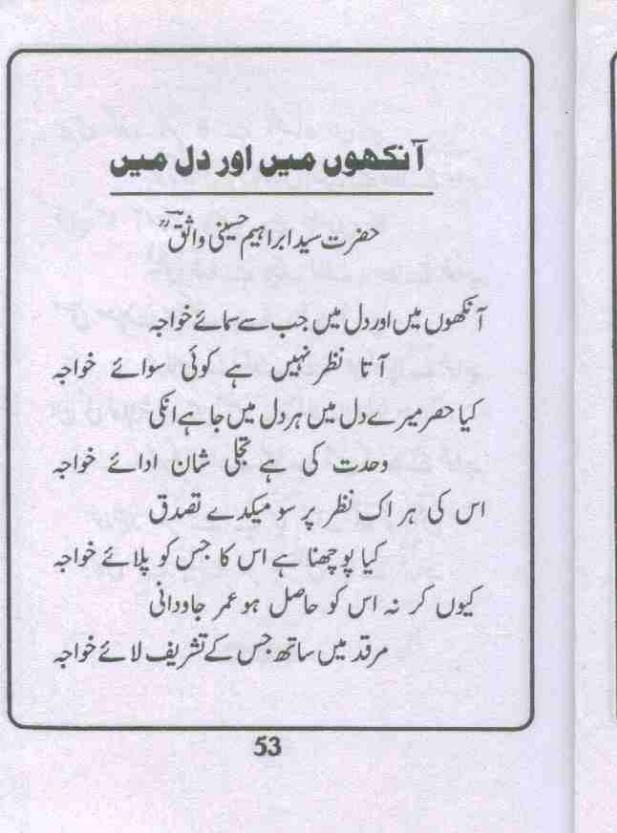 آنکھوں میں اور دل میں
حضرت سید ابراہیم حسینی واثقؒ
آنکھوں میں اور دل میں جب سے سمائے خواجہ
آتا نظر نہیں ہے کوئی سوائے خواجہ
کیا حصر میرے دل میں ہر دل میں جا ہے انکی
وحدت کی ہے تجلی شان ادائے خواجہ
اس کی ہر اک نظر پر سو میکدے تصدق
کیا پوچھنا ہے اس کا جس کو پلائے خواجہ
کیوں کر نہ اس کو حاصل ہو عمر جاودانی
مرقد میں ساتھ جس کے تشریف لائے خواجہ
53